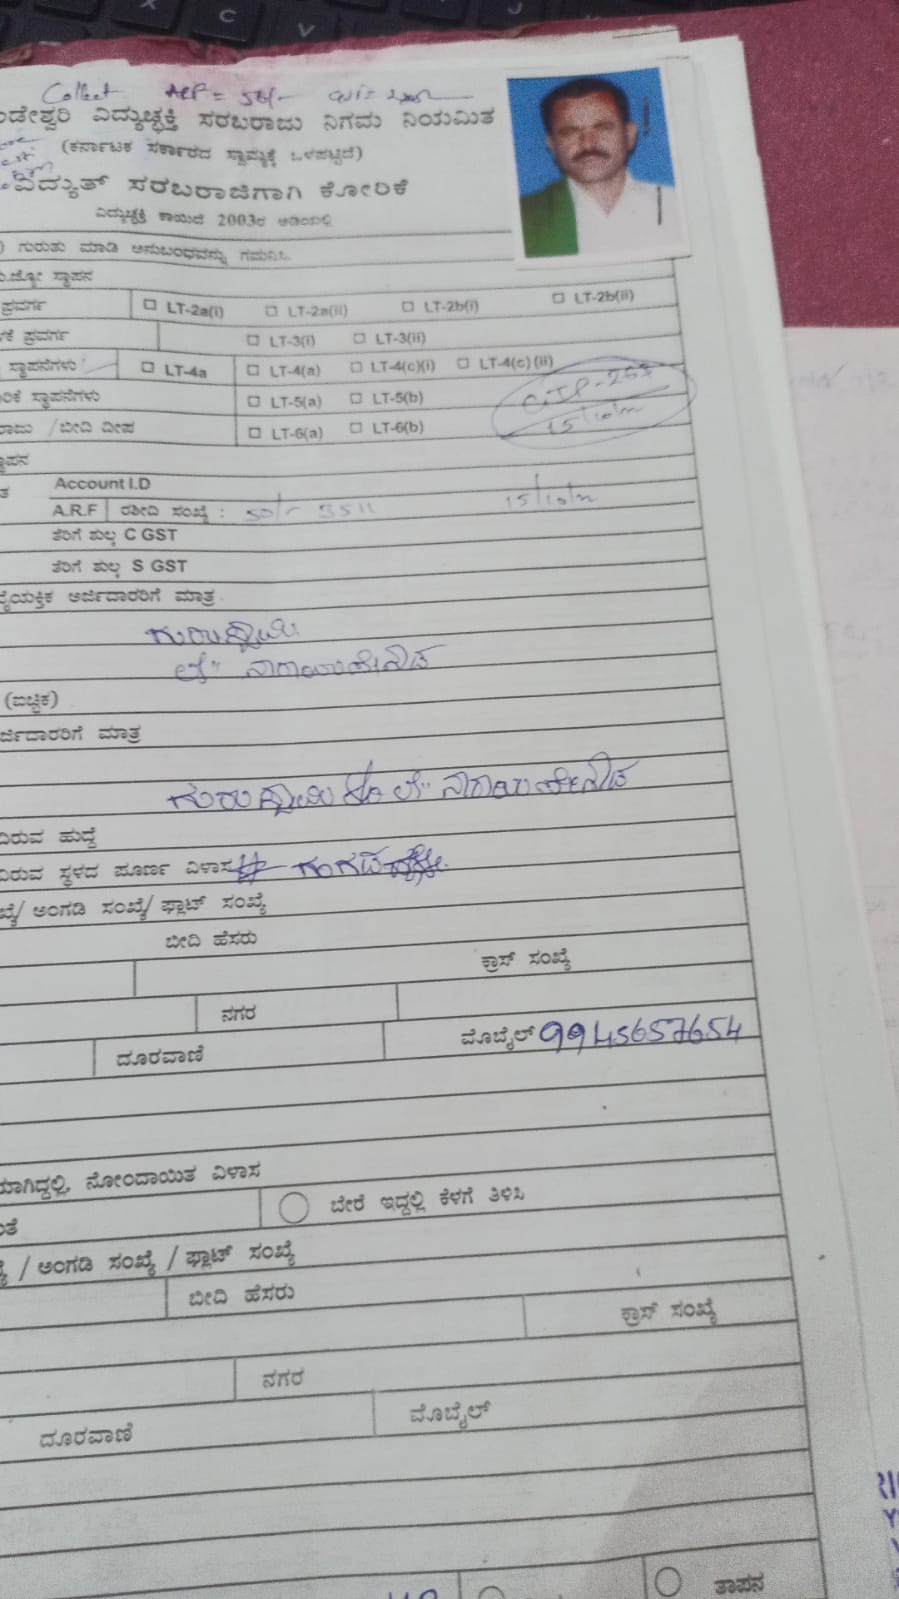 Collect ARF = 50/-
ಡೇಶ್ವರಿ ವಿದ್ಯುಚ್ಛಕ್ತಿ ಸರಬರಾಜು ನಿಗಮ ನಿಯಮಿತ
(ಕರ್ನಾಟಕ ಸರ್ಕಾರದ ಸ್ವಾಮ್ಯಕ್ಕೆ ಒಳಪಟ್ಟಿದೆ)
ವಿದ್ಯುತ್ ಸರಬರಾಜಿಗಾಗಿ ಕೋರಿಕೆ
ವಿದ್ಯುಚ್ಛಕ್ತಿ ಕಾಯಿದೆ 2003ರ ಅಡಿಯಲ್ಲಿ
) ಗುರುತು ಮಾಡಿ ಅನುಬಂಧವನ್ನು ಗಮನಿಸಿ
ಸ್ಥಾಪನ
ಪ್ರವರ್ಗ LT-2a(i) LT-2a(ii) LT-2b(i) LT-2b(ii)
ಕೆ ಪ್ರವರ್ಗ LT-3(i) LT-3(ii)
ಸ್ಥಾಪನೆಗಳು LT-4a LT-4(a) LT-4(c)(i) LT-4(c)(ii)
ರಿಕೆ ಸ್ಥಾಪನೆಗಳು LT-5(a) LT-5(b)
ರಾಜು / ಬೀದಿ ದೀಪ LT-6(a) LT-6(b)
ಸ್ಥಾಪನ
Account I.D
A.R.F ರಶೀದಿ ಸಂಖ್ಯೆ : 50/r 3511
ತೆರಿಗೆ ಶುಲ್ಕ C GST
ತೆರಿಗೆ ಶುಲ್ಕ S GST
ವೈಯಕ್ತಿಕ ಅರ್ಜಿದಾರರಿಗೆ ಮಾತ್ರ
ಗುರುಸ್ವಾಮಿ
(ಐಚ್ಛಿಕ)
ರ್ಜಿದಾರರಿಗೆ ಮಾತ್ರ
ಗುರುಸ್ವಾಮಿ
ದಿರುವ ಹುದ್ದೆ
ವಿರುವ ಸ್ಥಳದ ಪೂರ್ಣ ವಿಳಾಸ #
ಖ್ಯೆ/ ಅಂಗಡಿ ಸಂಖ್ಯೆ/ ಫ್ಲಾಟ್ ಸಂಖ್ಯೆ
ಬೀದಿ ಹೆಸರು
ಕ್ರಾಸ್ ಸಂಖ್ಯೆ
ನಗರ
ದೂರವಾಣಿ ಮೊಬೈಲ್ 9945657654
ಯಾಗಿದ್ದಲ್ಲಿ, ನೋಂದಾಯಿತ ವಿಳಾಸ
ಂತೆ ಬೇರೆ ಇದ್ದಲ್ಲಿ ಕೆಳಗೆ ತಿಳಿಸಿ
ಖ್ಯೆ / ಅಂಗಡಿ ಸಂಖ್ಯೆ / ಫ್ಲಾಟ್ ಸಂಖ್ಯೆ
ಬೀದಿ ಹೆಸರು
ಕ್ರಾಸ್ ಸಂಖ್ಯೆ
ನಗರ
ದೂರವಾಣಿ ಮೊಬೈಲ್
ತಾಪನ